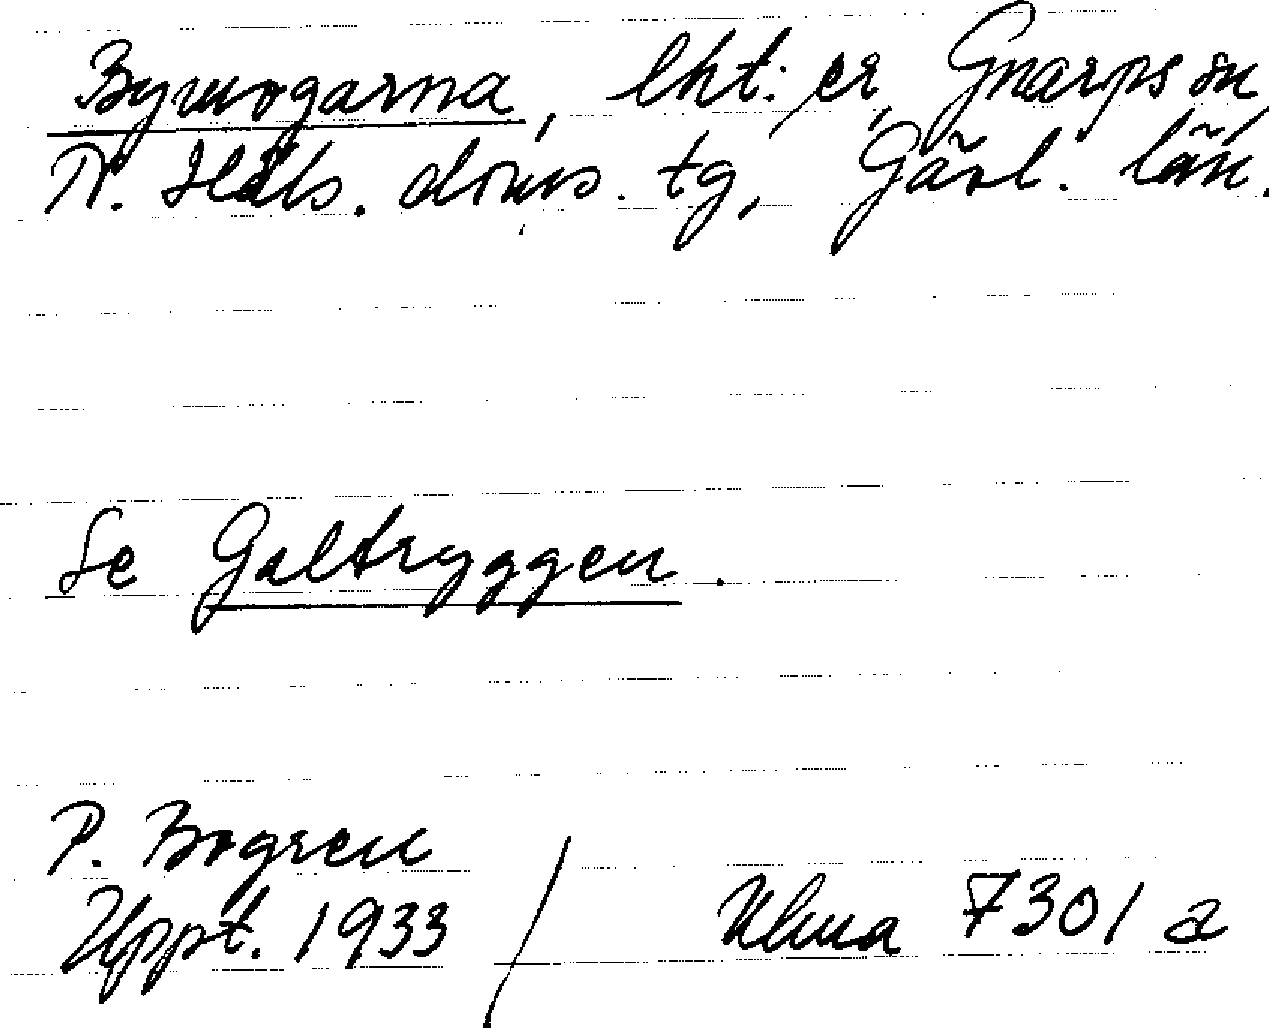 Bymogarna, lht: er, Gnarps sn,
N. Häls. doms. tg, Gävl. län.
Se Galtryggen.
P. Bogren
Uppt. 1933 / Ulma 7301 a